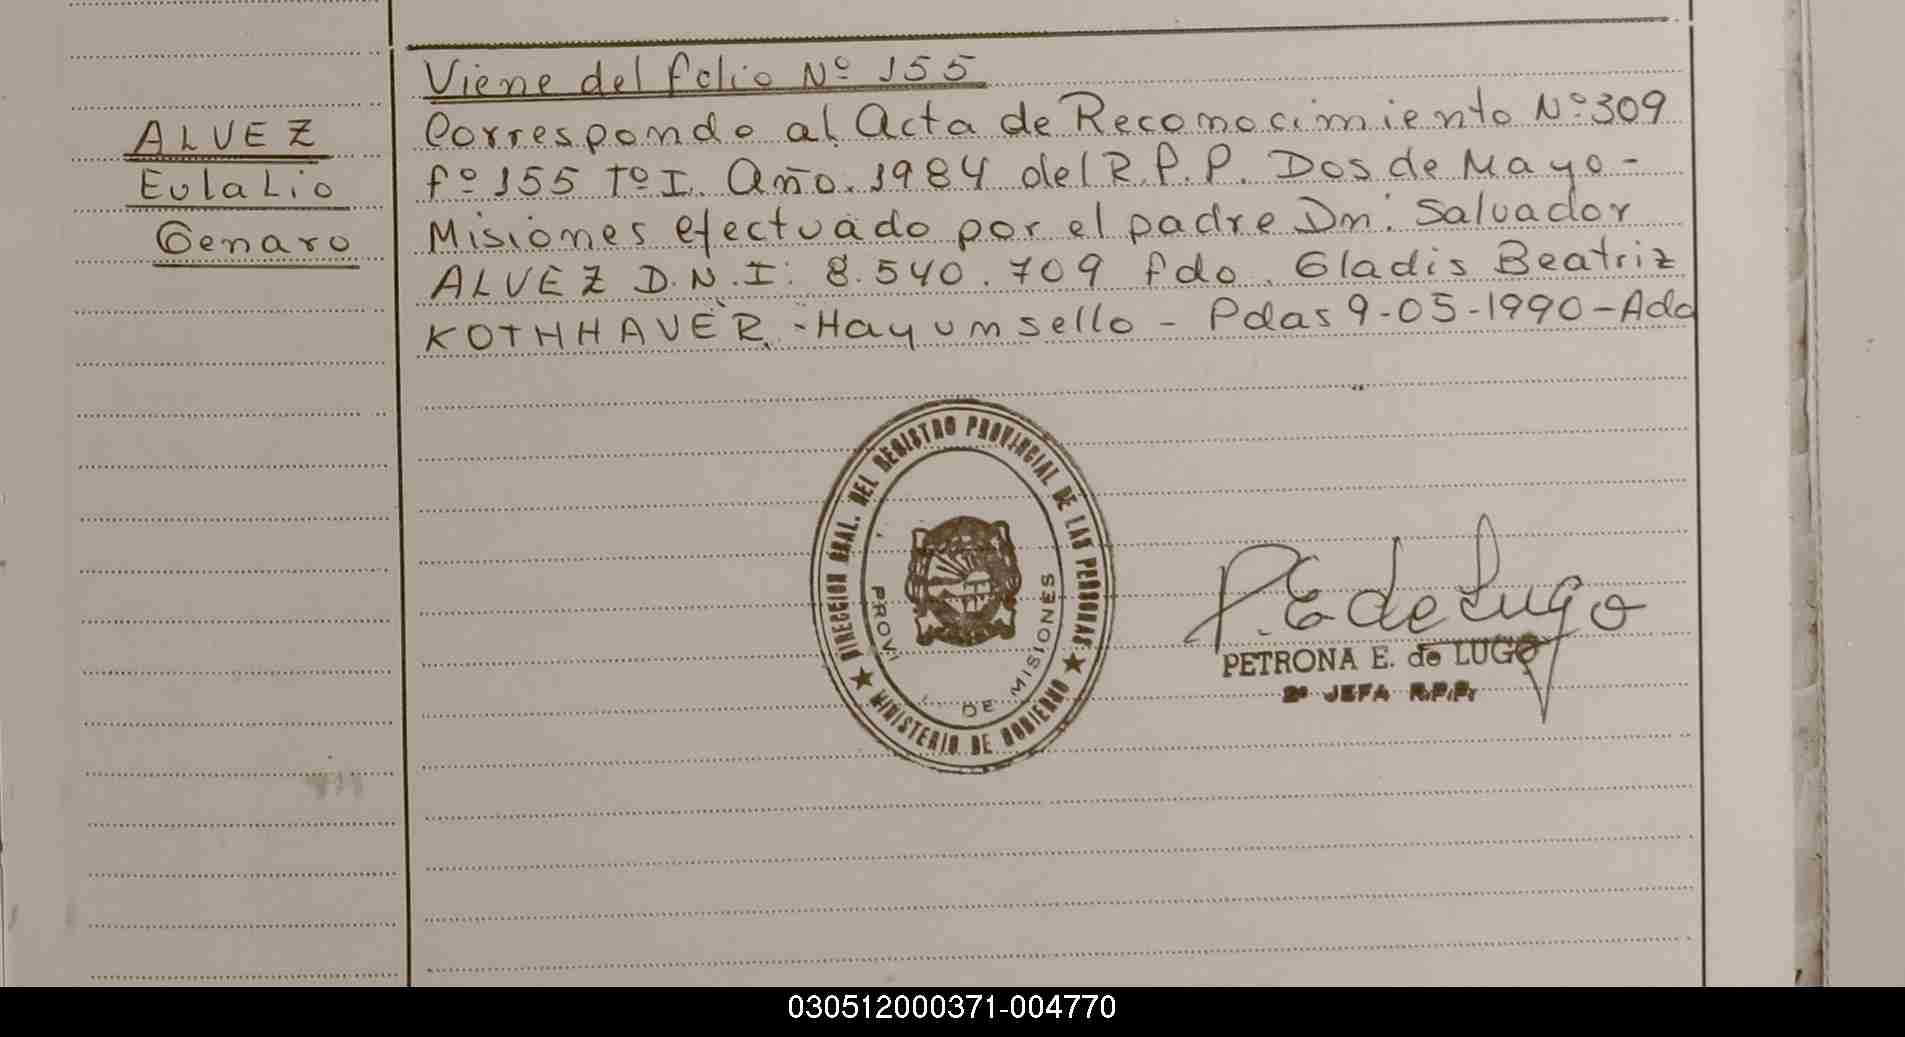 Viene del folio Nº 155
ALVEZ
Eulalio
Genaro
Corresponde al Acta de Reconocimiento Nº 309
fº 155 Tº I. Año. 1984 del R.P.P. Dos de Mayo -
Misiones efectuado por el padre Dn. Salvador
ALVEZ D.N.I: 8.540.709 fdo. Gladis Beatriz
KOTHHAVER. - Hay um sello - Pdas 9-05-1990 - Ada
DIRECCION GRAL. DEL REGISTRO PROVINCIAL DE LAS PERSONAS
PROVI DE MISIONES
★ MINISTERIO DE GOBIERNO ★
P. E de Lugo
PETRONA E. de LUGO
2ª JEFA R.P.P.
030512000371-004770